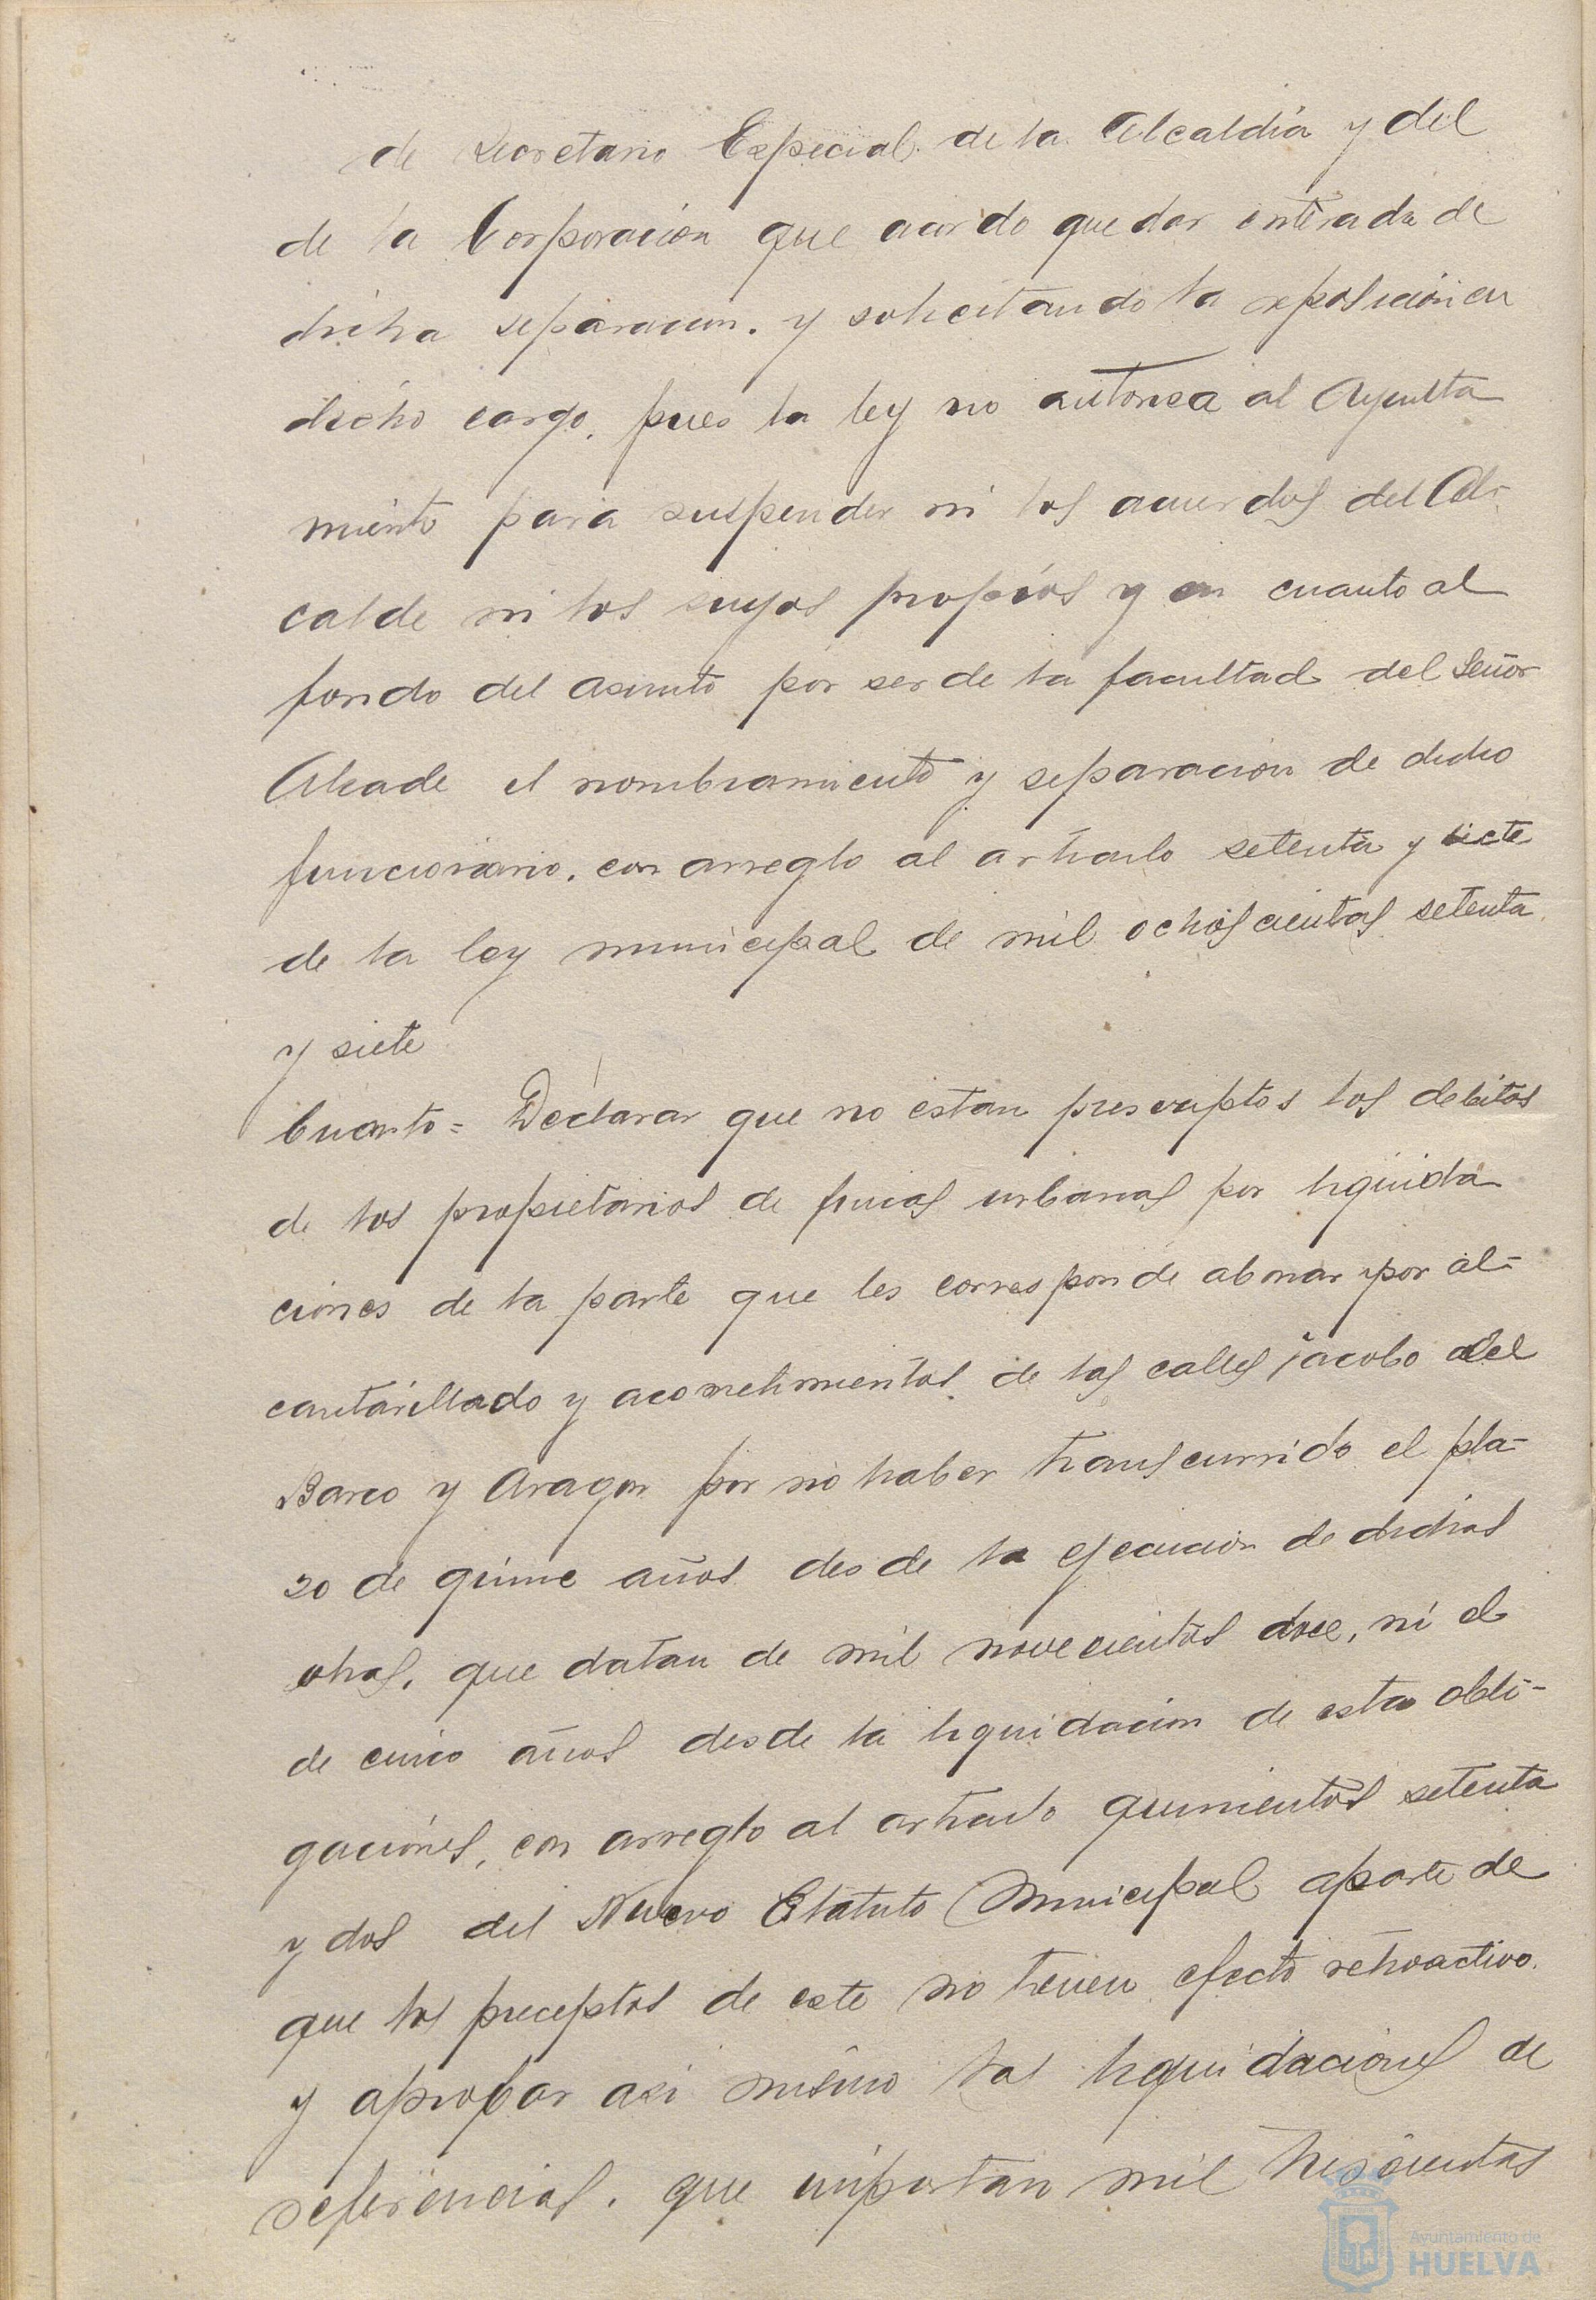 de Secretario Especial de la Alcaldía y del
de la Corporación que acordo quedar enterada de
dicha separacion. y solicitando la reposición en
dicho cargo. pues la ley no autoriza al Ayunta
miento para suspender ni los acuerdos del Al-
calde ni los suyos propios y en cuanto al
fondo del asunto por ser de la facultad del Señor
Alcade el nombramiento y separacion de dicho
funcionario. con arreglo al articulo setenta y siete
de la ley municipal de mil ochoscientos setenta
y siete
Cuarto = Declarar que no estan prescriptos los debitos
de los propietarios de fincas urbanas por liquida
ciones de la parte que les corresponde abonar por al-
cantarillado y acometimientos de las calles Jacobo del
Barco y Aragon por no haber transcurrido el pla-
zo de quince años desde la ejecucion de dichas
obras, que datan de mil novecientos doce, ni el
de cinco años desde la liquidacion de esta obli-
gaciónes, con arreglo al articulo quinientos setenta
y dos del Nuevo Estatuto Municipal aparte de
que los preceptos de este no tienen efecto retroactivo.
y aprobar asi mismo las liquidaciónes de
referencias. que importan mil trescientas
Ayuntamiento de
HUELVA